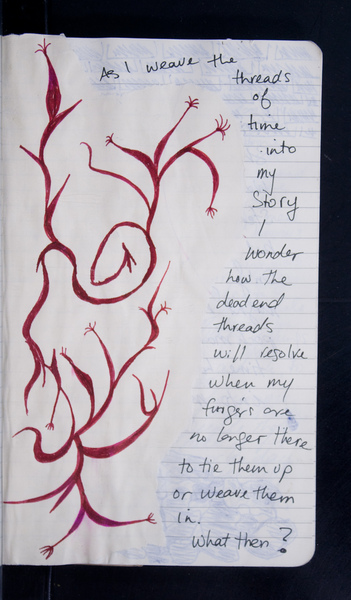 As I weave the
threads
of
time
into
my
Story
I
wonder
how the
dead end
threads
will resolve
when my
fingers are
no longer there
to tie them up
or weave them
in.
What then?